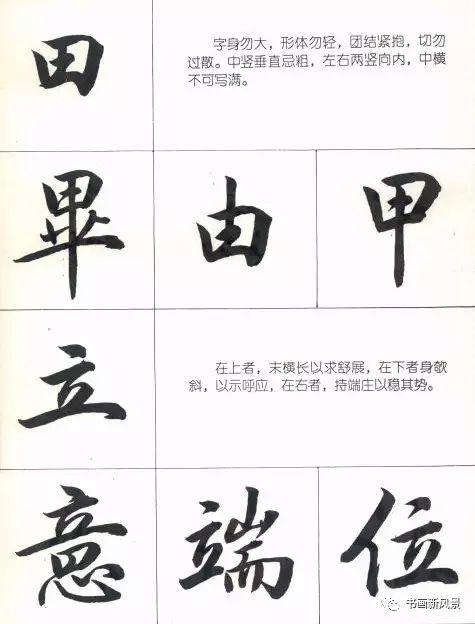 田
字身勿大，形体勿轻，团结紧抱，切勿
过散。中竖垂直忌粗，左右两竖向内，中横
不可写满。
畢 由 甲
立
在上者，末横长以求舒展，在下者身欹
斜，以示呼应，在右者，持端庄以稳其势。
意 端 位
书画新风景